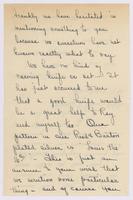 frankly we have hesitated in
mentioning anything to you
because we ourselves have not
known exactly what to say.
We have no kind of
carving knife or set - it
has just occurred to me
that a good knife would
be a great help to Harry
and myself too. Our
pattern in the Reed & Barton
plated silver is "Louis the
". This is just an
to your work that
we mention some particular
thing - and of course you